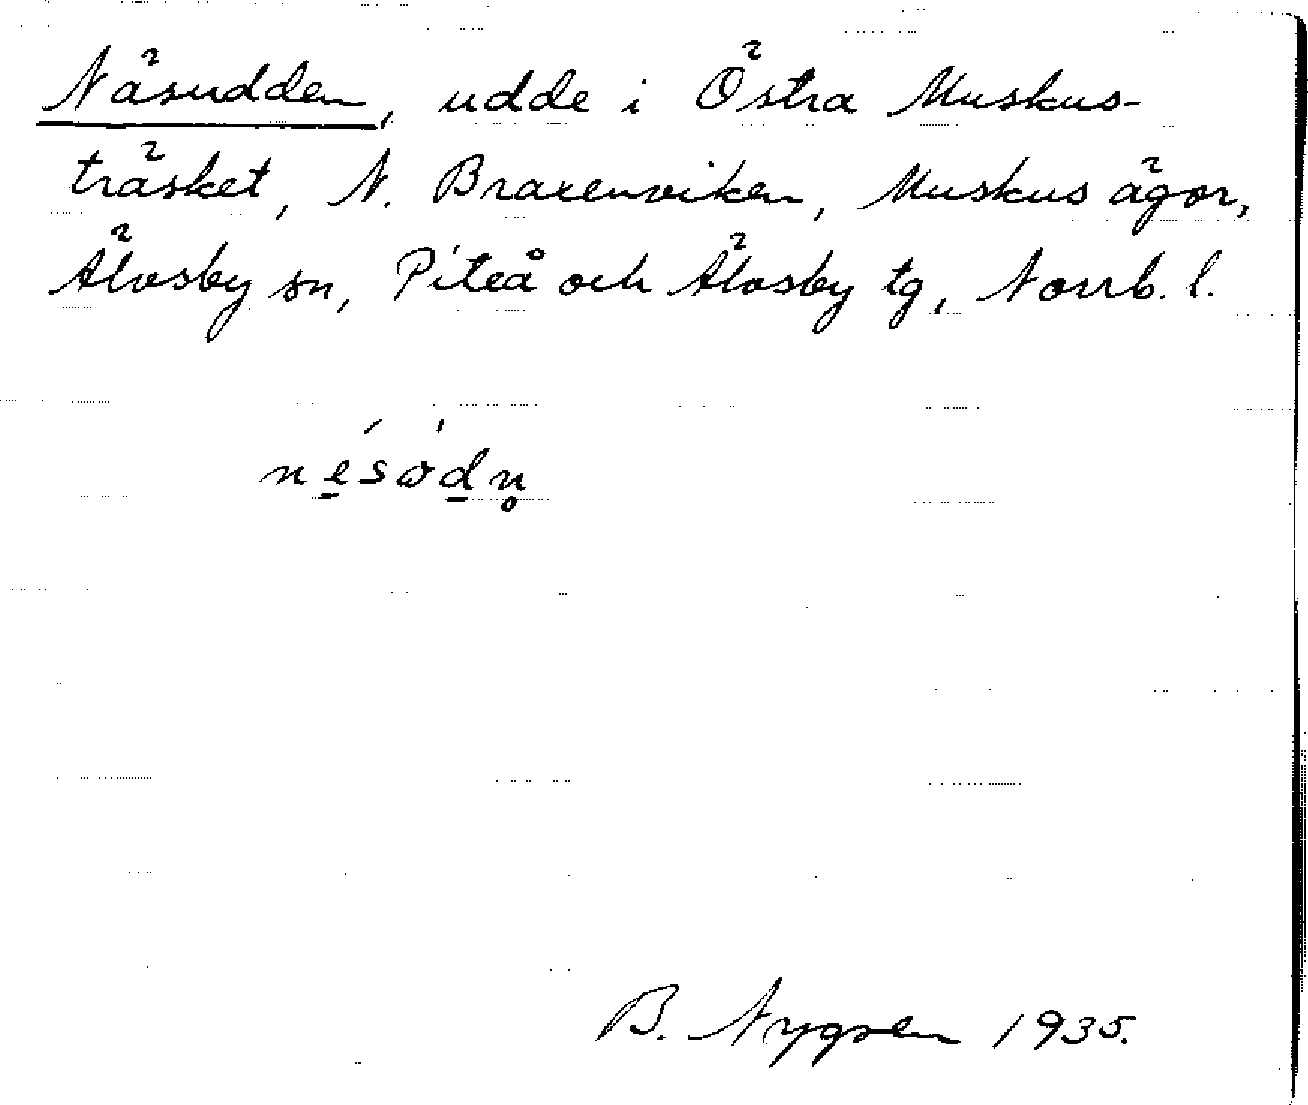 Näsudden, udde i Östra Muskus-
träsket, N. Braxenviken, Muskus ägor,
Älvsby sn, Piteå och Älvsby tg, Norrb. l.
nes̱ødn̥
B. Nygren 1935.